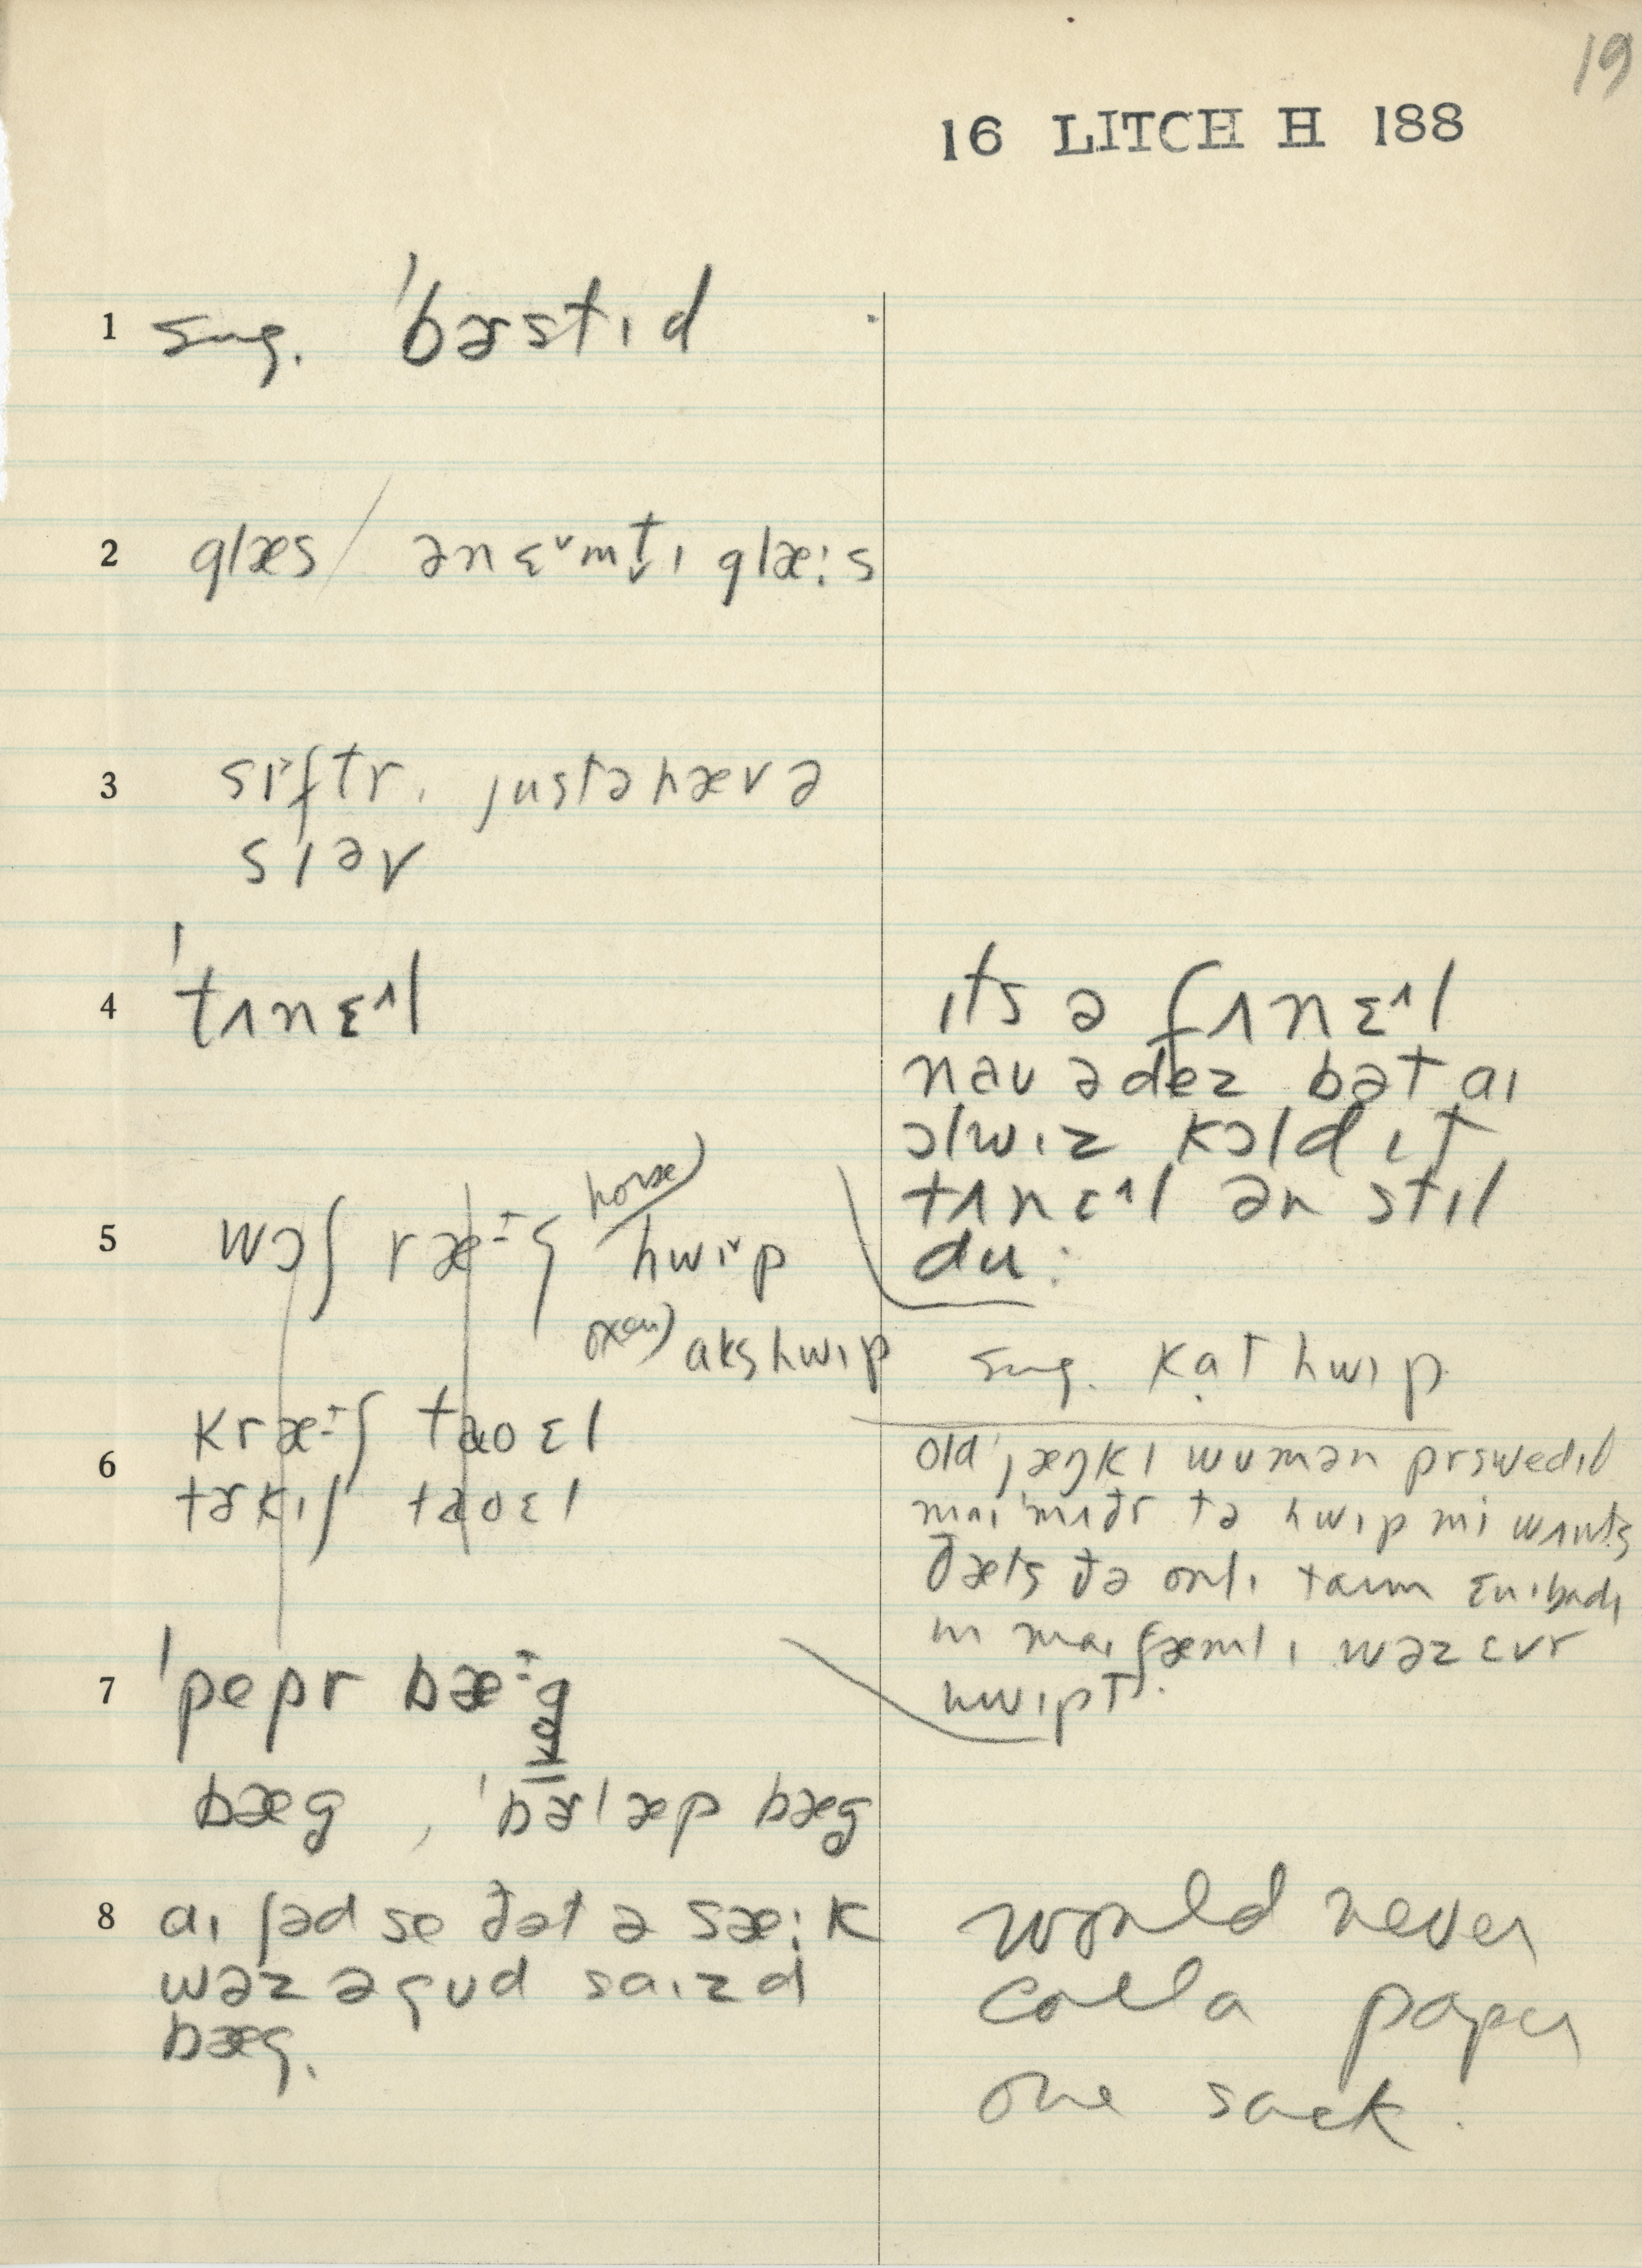 19
16 LITCH H 188
1 sug. ˈbɚstɪd
2 glæs / ən ɛ˅mt̬ɪ glæ:s
3 sɪ˅ftr. justəhæv ə
sɪəv
4 ˈtʌnɛ^l
ɪts ə fʌnɛ^l
nau ədez bət aɪ
ɔlwɪz kɔld ɪt
tʌnɛ^l ən stɪl
du:
5 wɔʃ ræ-ʃ horse) hwɪ˅p
oxen) akshwɪp
sug. kạt hwɪp
6 kræ-ʃ taoɛl
tɚkɪʃ taoɛl
old ˈjæŋkɪ wumən prswedɪd
maɪ ˈmʌðr tə hwɪp mi wʌnts
ðæts ðə onlɪ taɪm ɛnɪbadɪ
ɪn maɪ fæmlɪ wəz ɛvr
hwɪpt.
7 ˈpepr bæg
bæg, ˈbɚlæp bæg
8 aɪ ʃəd se ðət ə sæ:k
wəz ə gud saɪzd
bæg.
would never
call a paper
one sack.